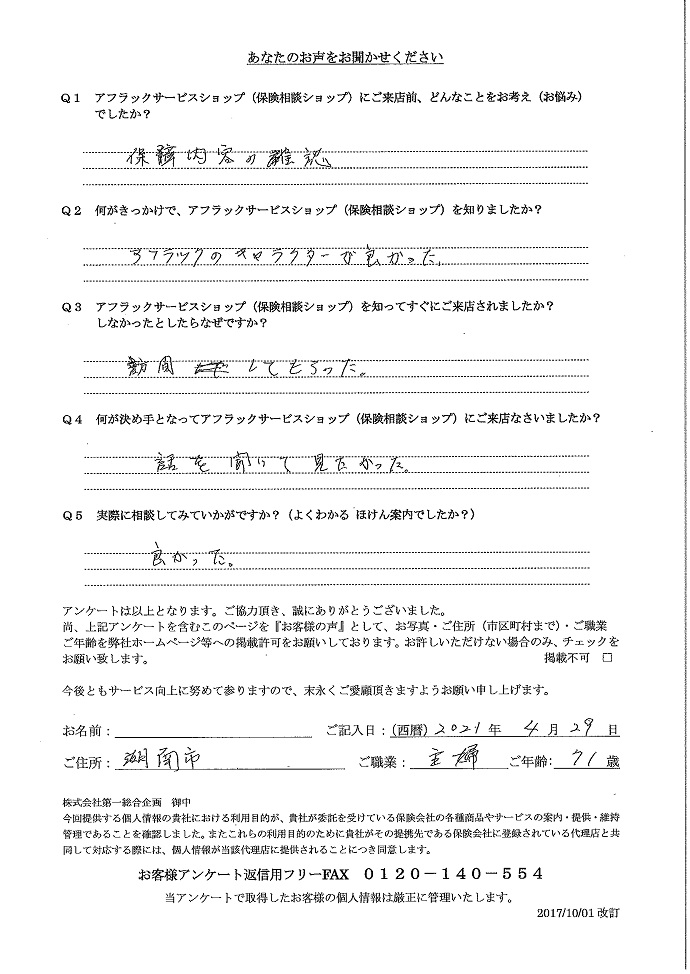 あなたのお声をお聞かせください
Q1 アフラックサービスショップ(保険相談ショップ)にご来店前、どんなことをお考え(お悩み)
でしたか?
保障内容の確認
Q2 何がきっかけで、アフラックサービスショップ(保険相談ショップ)を知りましたか?
アフラックのキャラクターが良かった。
Q3 アフラックサービスショップ(保険相談ショップ)を知ってすぐにご来店されましたか?
しなかったとしたらなぜですか?
訪問 してもらった。
Q4 何が決め手となってアフラックサービスショップ(保険相談ショップ)にご来店なさいましたか?
話を聞いて見たかった。
Q5 実際に相談してみていかがですか?(よくわかる ほけん案内でしたか?)
良かった。
アンケートは以上となります。ご協力頂き、誠にありがとうございました。
尚、上記アンケートを含むこのページを『お客様の声』として、お写真・ご住所(市区町村まで)・ご職業
ご年齢を弊社ホームページ等への掲載許可をお願いしております。お許しいただけない場合のみ、チェックを
お願い致します。 掲載不可 □
今後ともサービス向上に努めて参りますので、末永くご愛顧頂きますようお願い申し上げます。
お名前: ご記入日:(西暦)2021年 4月29日
ご住所: 湖南市 ご職業: 主婦 ご年齢: 71歳
株式会社第一総合企画 御中
今回提供する個人情報の貴社における利用目的が、貴社が委託を受けている保険会社の各種商品やサービスの案内・提供・維持
管理であることを確認しました。またこれらの利用目的のために貴社がその提携先である保険会社に登録されている代理店と共
同して対応する際には、個人情報が当該代理店に提供されることにつき同意します。
お客様アンケート返信用フリーFAX 0120-140-554
当アンケートで取得したお客様の個人情報は厳正に管理いたします。
2017/10/01 改訂